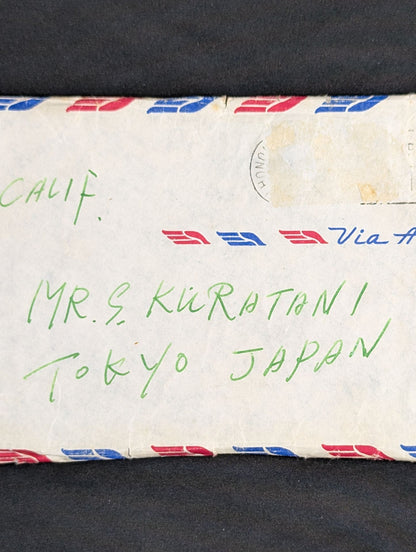 CALIF.
Via A
MR. S. KURATANI
TOKYO JAPAN